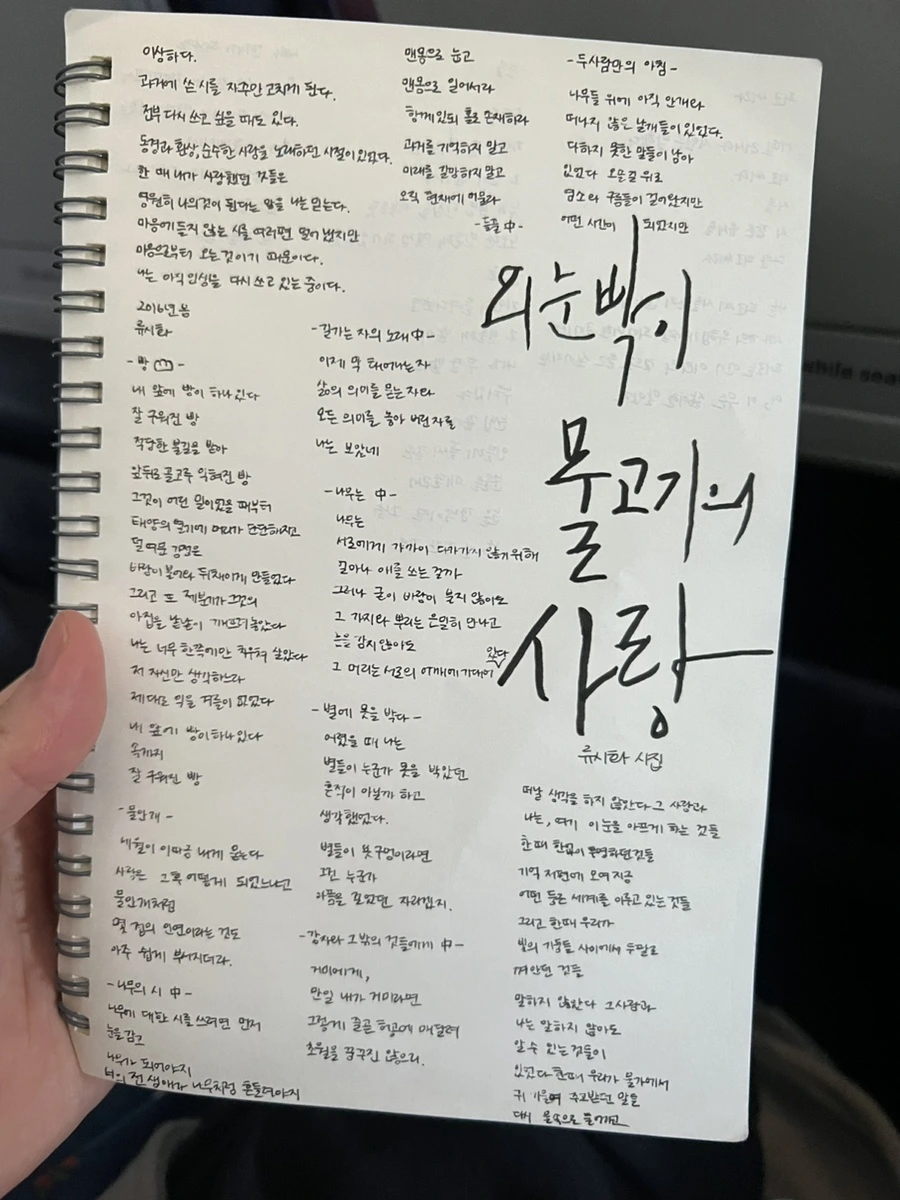 이상하다.
과거에 쓴 시를 자꾸만 고치게 된다.
전부 다시 쓰고 싶을 때도 있다.
동경과 환상, 순수한 사랑을 노래하던 시절이 있었다.
한 때 내가 사랑했던 것들은
영원히 나의것이 된다는 말을 나는 믿는다.
마음에 들지 않는 시를 여러편 덜어 냈지만
마음으로부터 오는 것이기 때문이다.
나는 아직 인생을 다시 쓰고 있는 중이다.
2016년 봄
류시화
-빵-
내 앞에 빵이 하나 있다
잘 구워진 빵
적당한 불길을 받아
앞뒤로 골고루 익혀진 빵
그것이 어린 밀이었을 때부터
태양의 열기에 머리가 단단해지고
덜 여문 감정은
바람이 불어와 뒤채이게 만들었다
그리고 또 제분기가 그것의
아집을 낱낱이 깨뜨려 놓았다
나는 너무 한쪽에만 치우쳐 살았다
저 자신만 생각하느라
제대로 익을 겨를이 없었다
내 앞에 빵이 하나 있다
속까지
잘 구워진 빵
-물안개-
세월이 이따금 내게 묻는다
사랑은 그 후 어떻게 되었느냐고
물안개처럼
몇 겁의 인연이라는 것도
아주 쉽게 부서지더라.
-나무의 시 中-
나무에 대한 시를 쓰려면 먼저
눈을 감고
나무가 되어야지
너의 전 생애가 나무처럼 흔들려야지
맨몸으로 눕고
맨몸으로 일어서라
함께 있되 홀로 존재하라
과거를 기억하지 말고
미래를 갈망하지 말고
오직 현재에 머물라
-들풀 中-
-길가는 자의 노래 中-
이제 막 태어나는 자
삶의 의미를 묻는 자와
모든 의미를 놓아 버린 자를
나는 보았네
-나무는 中-
나무는
서로에게 가까이 다가가지 않기 위해
얼마나 애를 쓰는 걸까
그러나 굳이 바람이 불지 않아도
그 가지와 뿌리는 은밀히 만나고
눈을 감지 않아도
그 머리는 서로의 어깨에 기대어 있다
-별에 못을 박다-
어렸을 때 나는
별들이 누군가 못을 박았던
흔적이 아닐까 하고
생각했었다.
별들이 못구멍이라면
그건 누군가
아픔을 걸었던 자리겠지.
-감자와 그밖의 것들에게 中-
거미에게,
만일 내가 거미라면
그렇게 줄곧 허공에 매달려
초월을 꿈꾸진 않으리.
-두사람만의 아침-
나무들 위에 아직 안개와
떠나지 않은 날개들이 있었다.
다하지 못한 말들이 남아
있었다 오솔길 위로
염소와 구름들이 걸어왔지만
어떤 시간이 되었지만
외눈박이
물고기의
사랑
류시화 시집
떠날 생각을 하지 않았다 그 사람과
나는, 여기 이 눈을 아프게 하는 것들
한때 한없이 투명하던것들
기억 저편에 모여 지금
어떤 둥근 세계를 이루고 있는 것들
그리고 한때 우리가
빛의 기둥들 사이에서 두팔로
껴안던 것들
말하지 않았다 그 사람과
나는 말하지 않아도
알 수 있는 것들이
있었다 한때 우리가 물가에서
귀 기울여 주고받던 말들
다시 물속으로 들어가고